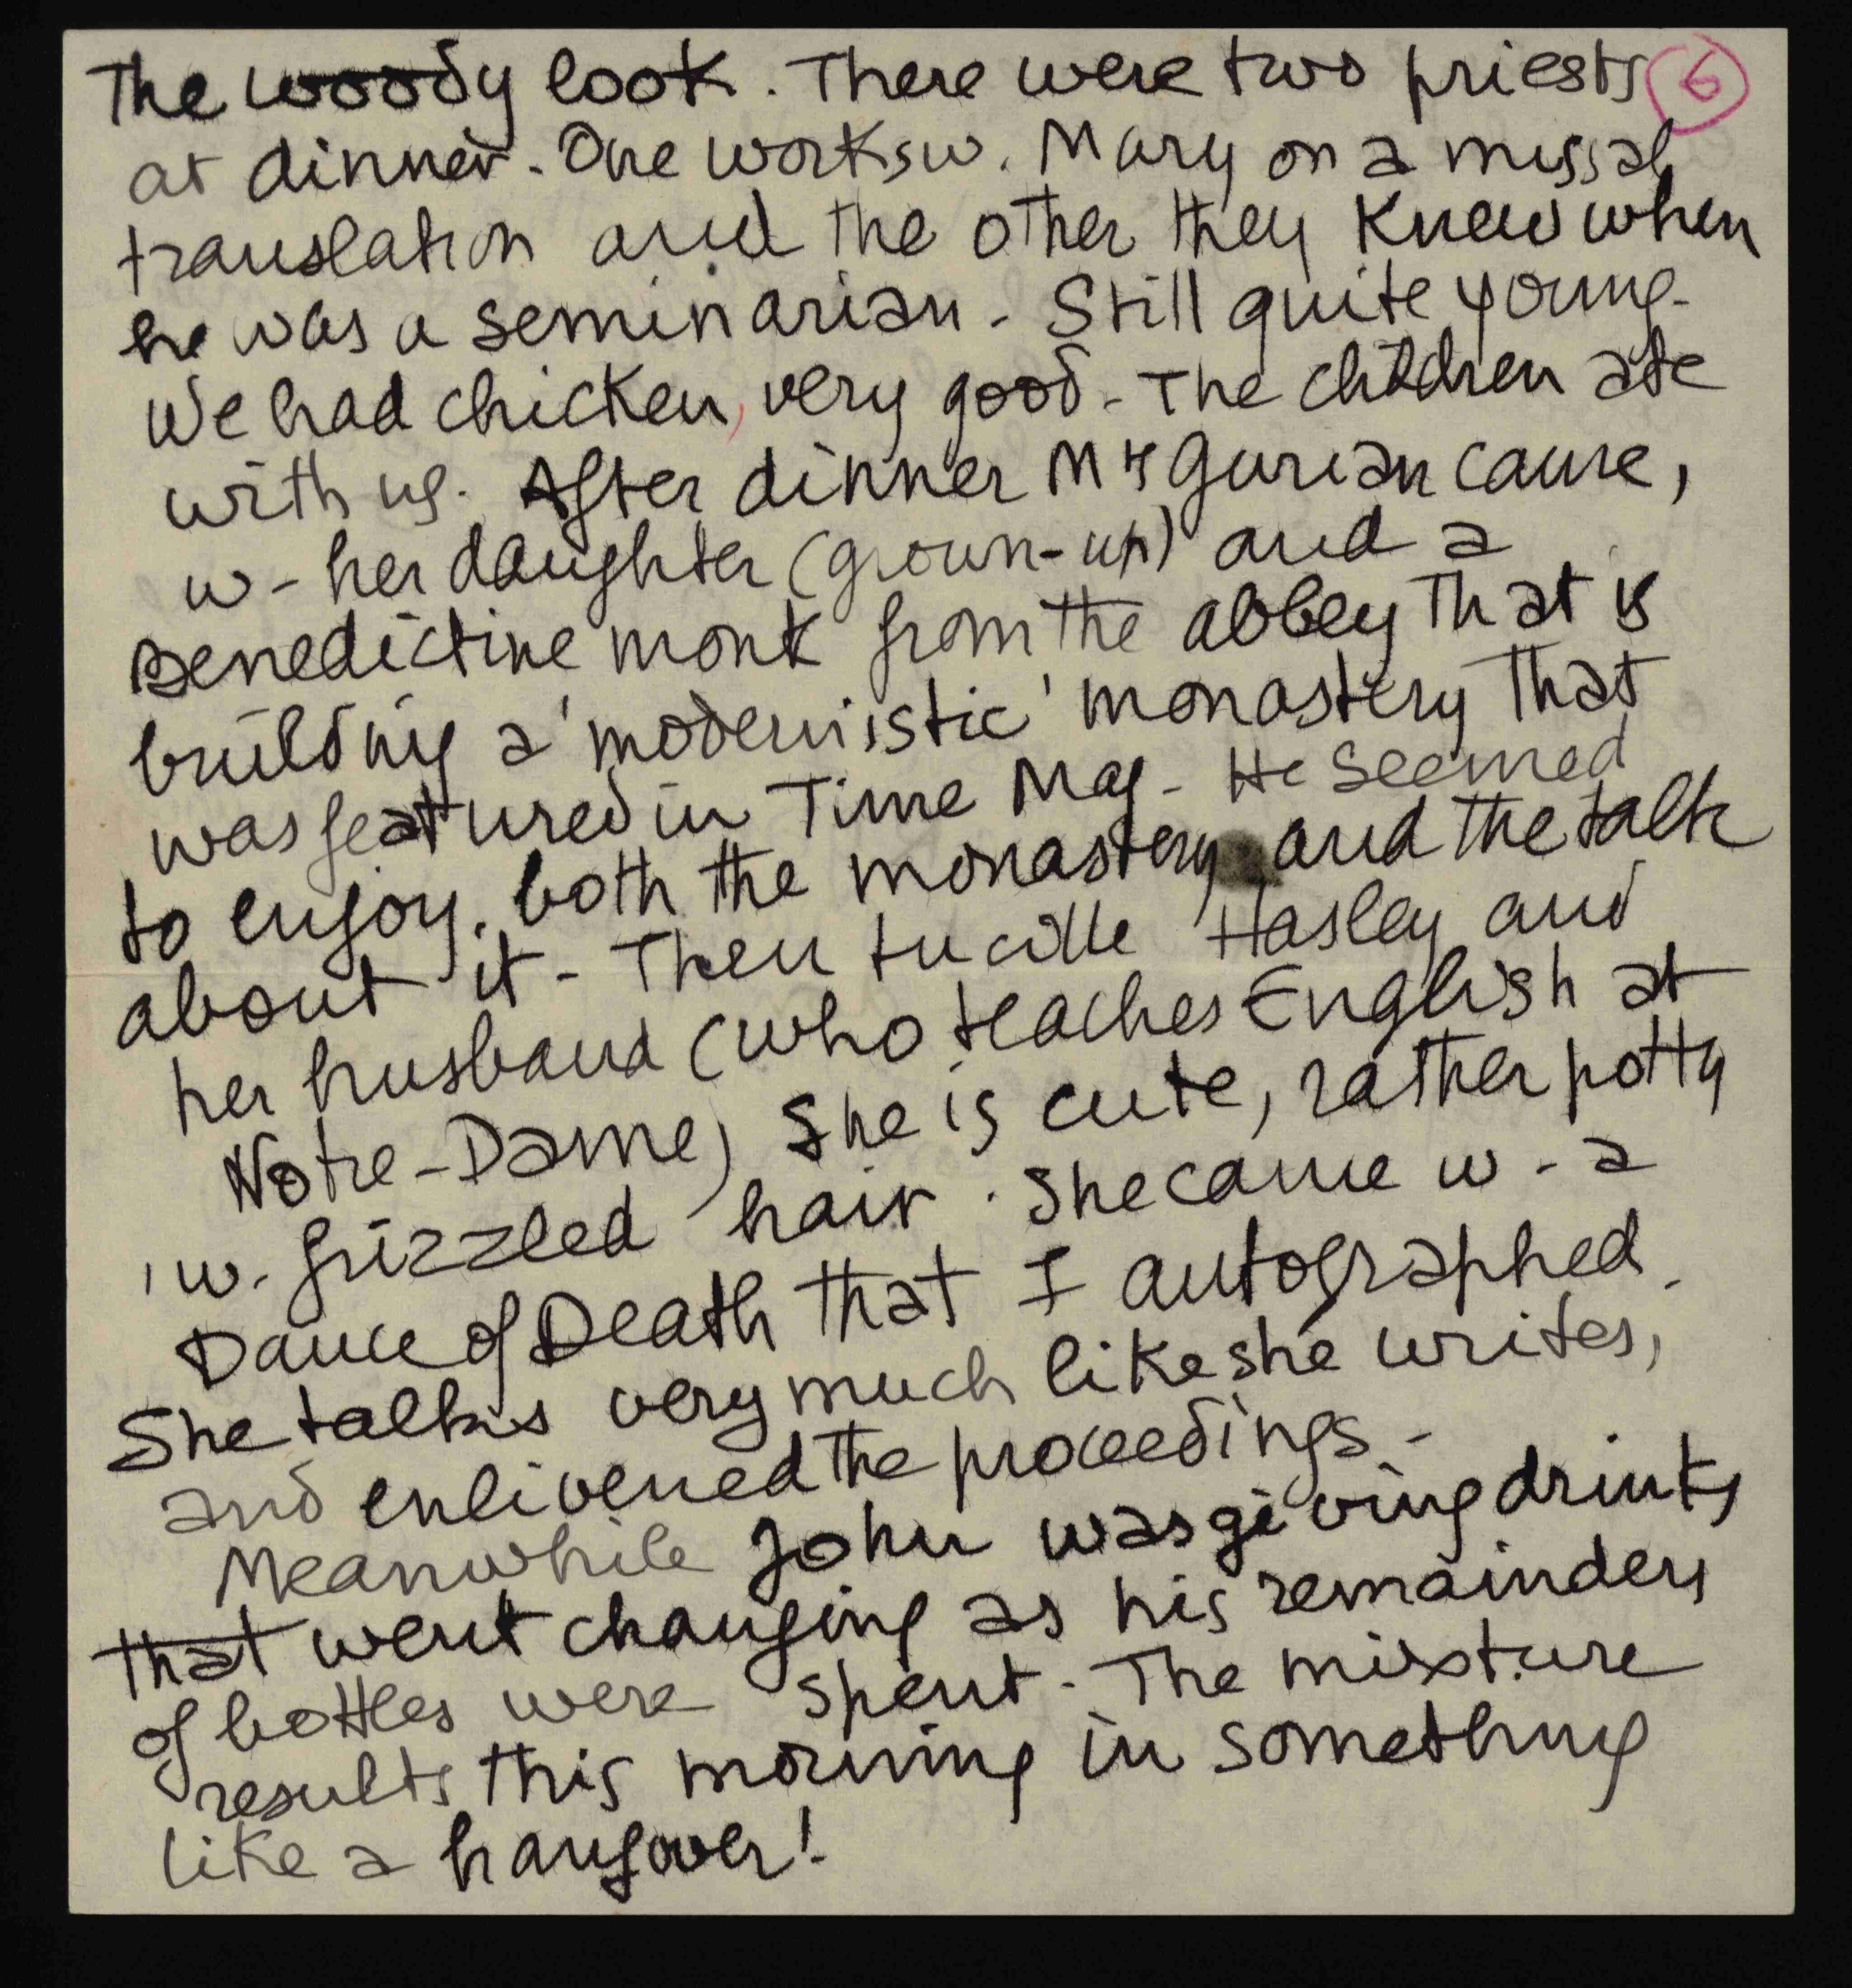 The woody look. There were two priests 6
at dinner. One works w. Mary on a missal
translation and the other they knew when
he was a seminarian. Still quite young.
We had chicken, very good. The children ate
with us. After dinner Mrs Gurian came,
w- her daughter (grown-up) and a
Benedictine monk from the abbey that is
building a 'modernistic' monastery that
was featured in Time Mag. He seemed
to enjoy. both the monastery and the talk
about it - Then Lucille Hasley and
her husband (who teaches English at
Notre-Dame) She is cute, rather potty
w. frizzled hair. She came w- a
Dance of Death that I autographed.
She talks very much like she writes,
and enlivened the proceedings -
Meanwhile John was giving drinks
that went changing as his remainders
of bottles were spent. The mixture
results this morning in something
like a hangover!